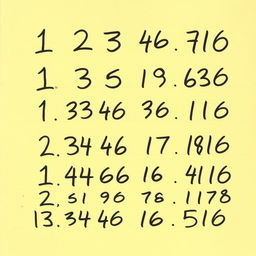 1 2 3 46.716
1. 3 5 19.636
1.3346 36.116
2.3446 17.1816
1.4466 16.4116
2.5196 78.1178
13.3446 16.516